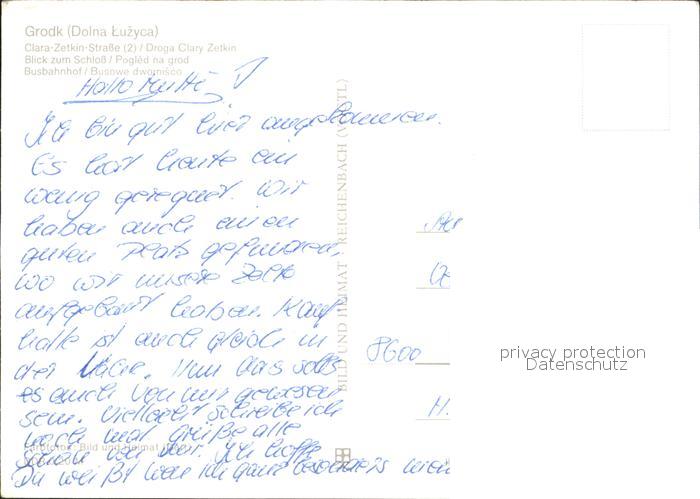 Grodk (Dolna Łužyca)
Clara-Zetkin-Straße (2) / Droga Clary Zetkin
Blick zum Schloß / Pogłěd na grod
Busbahnhof / Busowe dwornišćo
Hallo Mutti!
Ich bin gut hier angekommen.
Es hat heute ein
wenig geregnet. Wir
haben auch einen
guten Platz gefunden,
wo wir unsere Zelte
aufgebaut haben. Kauf
halle ist auch gleich in
der Nähe. Nun das solls
es auch von mir gewesen
sein. Vielleicht schreibe ich
noch mal. Grüße alle
schön von mir. Ich hoffe
Du weißt wen ich ganz besonders
BILD UND HEIMAT · REICHENBACH (VOGTL)
8600
H.
Bild und Heimat
privacy protection
Datenschutz